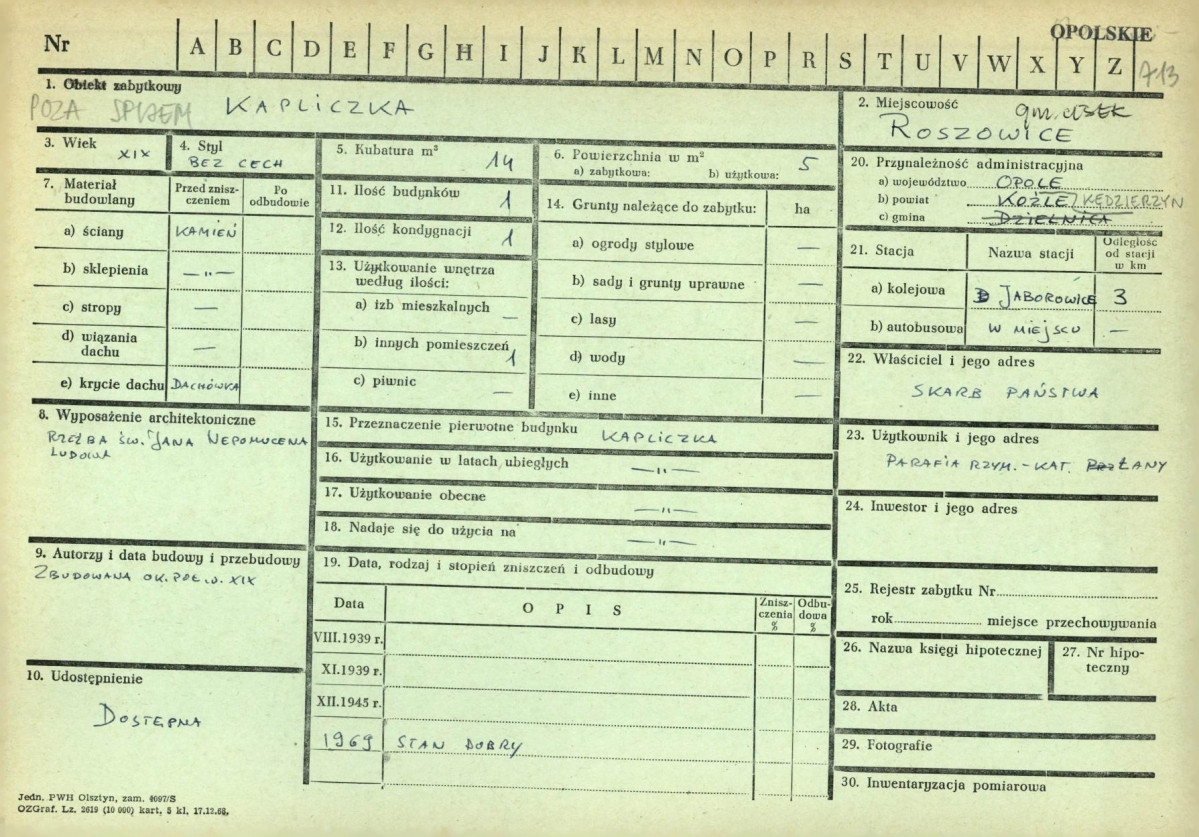 OPOLSKIE
Nr A B C D E F G H I J K L M N O P R S T U V W X Y Z 713
1. Obiekt zabytkowy
POZA SPISEM KAPLICZKA
2. Miejscowość
gm. CISEK
ROSZOWICE
3. Wiek
XIX
4. Styl
BEZ CECH
5. Kubatura m³ 14
6. Powierzchnia w m² 5
a) zabytkowa: b) użytkowa:
7. Materiał budowlany
Przed zniszczeniem
Po odbudowie
a) ściany KAMIEŃ
b) sklepienia —"—
c) stropy —
d) wiązania dachu —
e) krycie dachu DACHÓWKA
8. Wyposażenie architektoniczne
RZEŹBA ŚW. JANA NEPOMUCENA
LUDOWA
9. Autorzy i data budowy i przebudowy
ZBUDOWANA OK. POŁ. W. XIX
10. Udostępnienie
DOSTĘPNA
11. Ilość budynków 1
12. Ilość kondygnacji 1
13. Użytkowanie wnętrza
według ilości:
a) izb mieszkalnych —
b) innych pomieszczeń 1
c) piwnic —
14. Grunty należące do zabytku: ha
a) ogrody stylowe —
b) sady i grunty uprawne —
c) lasy —
d) wody —
e) inne —
15. Przeznaczenie pierwotne budynku KAPLICZKA
16. Użytkowanie w latach ubiegłych —"—
17. Użytkowanie obecne —"—
18. Nadaje się do użycia na —"—
19. Data, rodzaj i stopień zniszczeń i odbudowy
Data OPIS Zniszczenia % Odbudowa %
VIII.1939 r.
XI.1939 r.
XII.1945 r.
1969 STAN DOBRY
20. Przynależność administracyjna
a) województwo OPOLE
b) powiat KOŹLE / KĘDZIERZYN
c) gmina DZIELNICA
21. Stacja Nazwa stacji Odległość od stacji w km
a) kolejowa JABOROWICE 3
b) autobusowa W MIEJSCU —
22. Właściciel i jego adres
SKARB PAŃSTWA
23. Użytkownik i jego adres
PARAFIA RZYM.-KAT. ŁANY
24. Inwestor i jego adres
25. Rejestr zabytku Nr
rok miejsce przechowywania
26. Nazwa księgi hipotecznej
27. Nr hipoteczny
28. Akta
29. Fotografie
30. Inwentaryzacja pomiarowa
Jedn. PWH Olsztyn, zam. 4097/S
OZGraf. Lz. 2619 (10 000) kart. 5 kl. 17.12.68.